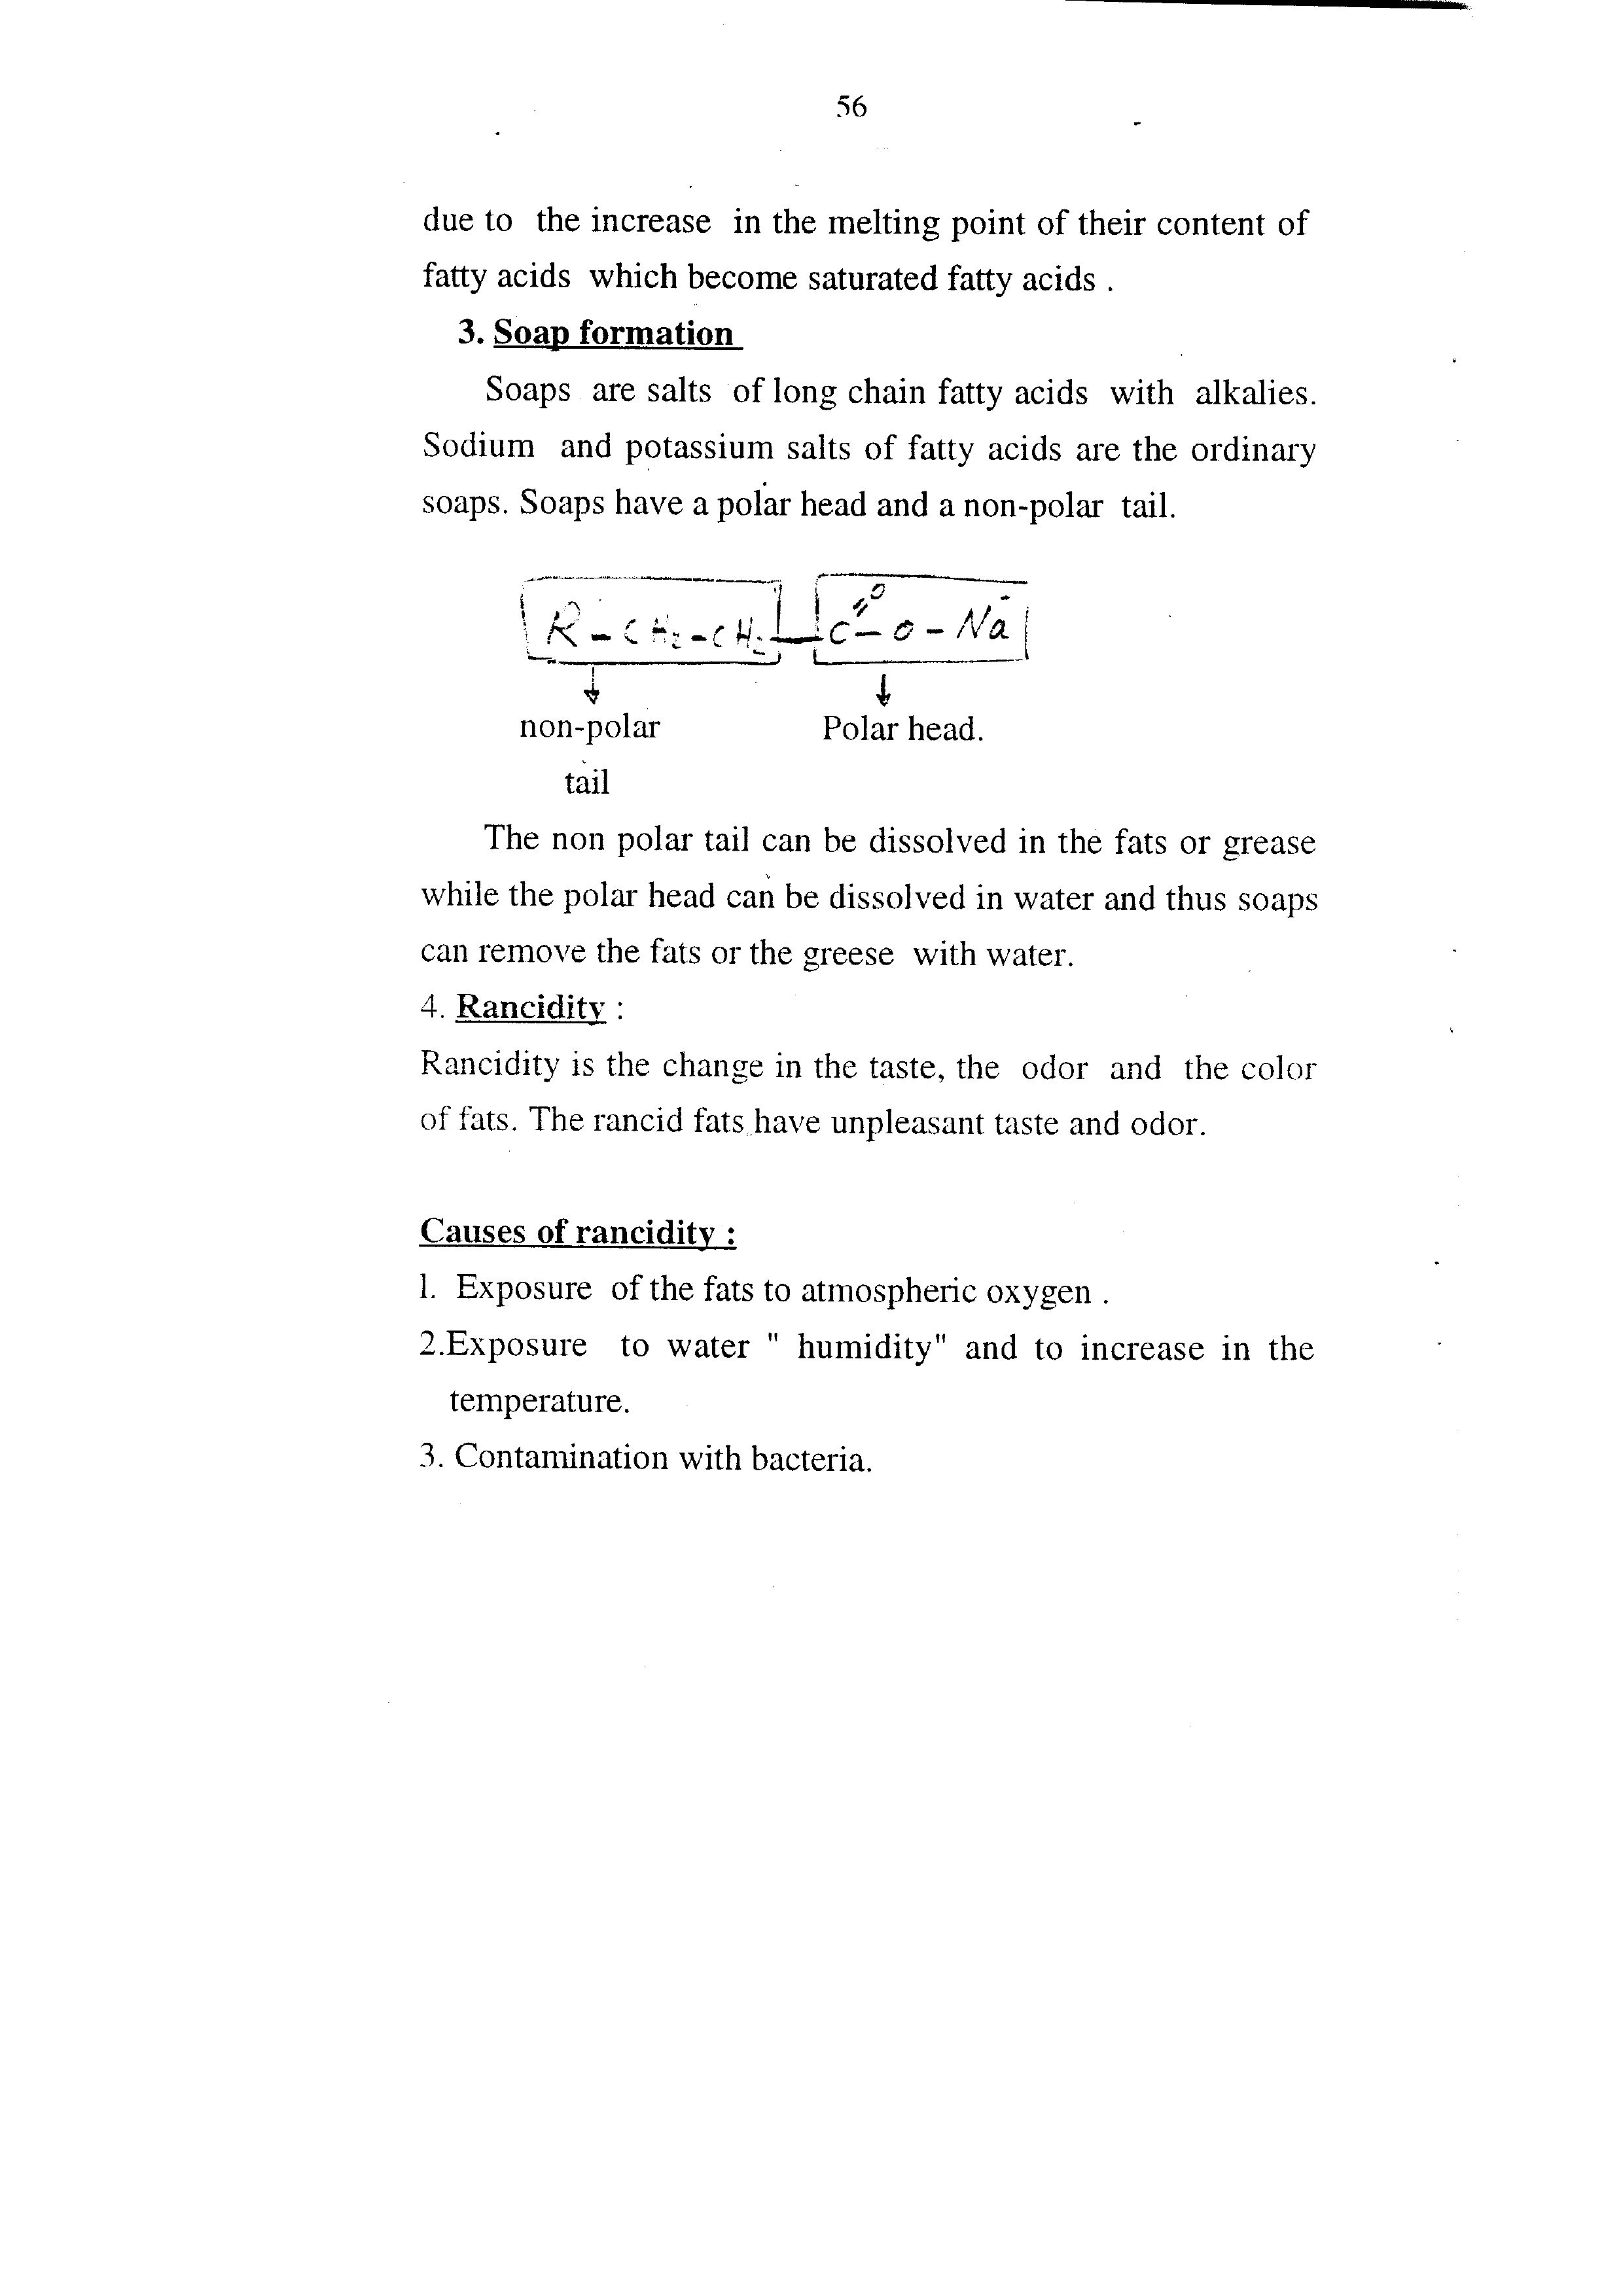 56
due to the increase in the melting point of their content of
fatty acids which become saturated fatty acids .
3. Soap formation
Soaps are salts of long chain fatty acids with alkalies.
Sodium and potassium salts of fatty acids are the ordinary
soaps. Soaps have a polar head and a non-polar tail.
R - CH2 - CH2 — C - O - Na
O
non-polar Polar head.
tail
The non polar tail can be dissolved in the fats or grease
while the polar head can be dissolved in water and thus soaps
can remove the fats or the greese with water.
4. Rancidity :
Rancidity is the change in the taste, the odor and the color
of fats. The rancid fats have unpleasant taste and odor.
Causes of rancidity :
1. Exposure of the fats to atmospheric oxygen .
2.Exposure to water " humidity" and to increase in the
temperature.
3. Contamination with bacteria.